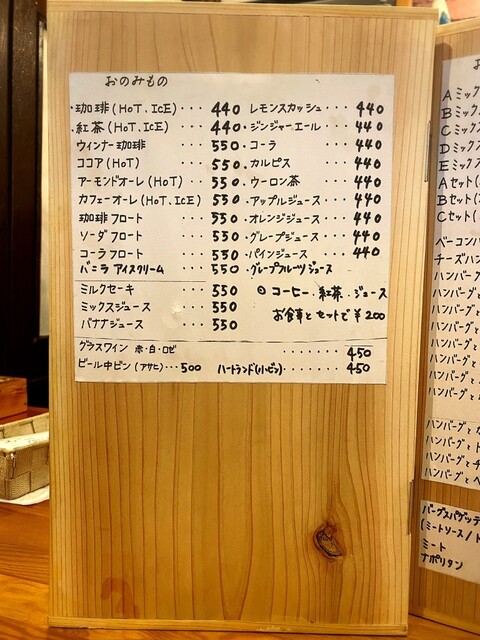 おのみもの
・珈琲(HOT.ICE)・・・440
・紅茶(HOT.ICE)・・・440
ウィンナー珈琲・・・550
ココア(HOT)・・・550
アーモンドオーレ(HOT)・・・550
カフェーオーレ(HOT.ICE)・・・550
珈琲フロート・・・550
ソーダフロート・・・550
コーラフロート・・・550
バニラアイスクリーム・・・550
ミルクセーキ・・・550
ミックスジュース・・・550
バナナジュース・・・550
・レモンスカッシュ・・・440
・ジンジャーエール・・・440
・コーラ・・・440
・カルピス・・・440
・ウーロン茶・・・440
・アップルジュース・・・440
・オレンジジュース・・・440
・グレープジュース・・・440
・パインジュース・・・440
・グレープフルーツジュース
◎コーヒー.紅茶.ジュース
お食事とセットで¥200
グラスワイン 赤・白・ロゼ ・・・・・・・450
ビール中ビン(アサヒ)・・・500 ハートランド(小ビン)・・・・450
お
Aミック
Bミック
Cミック
Dミック
Eミック
Aセット(
Bセット(
Cセット(
ベーコンバ
チーズハン
ハンバーグ
ハンバーグと
ハンバーグと
ハンバーグと
ハンバーグと
ハンバーグと
ハンバーグと
ハンバーグと
ハンバーグと
ハンバーグと
ハンバーグと
バーグスパゲッテ
(ミートソース/ト
ミート
ナポリタン